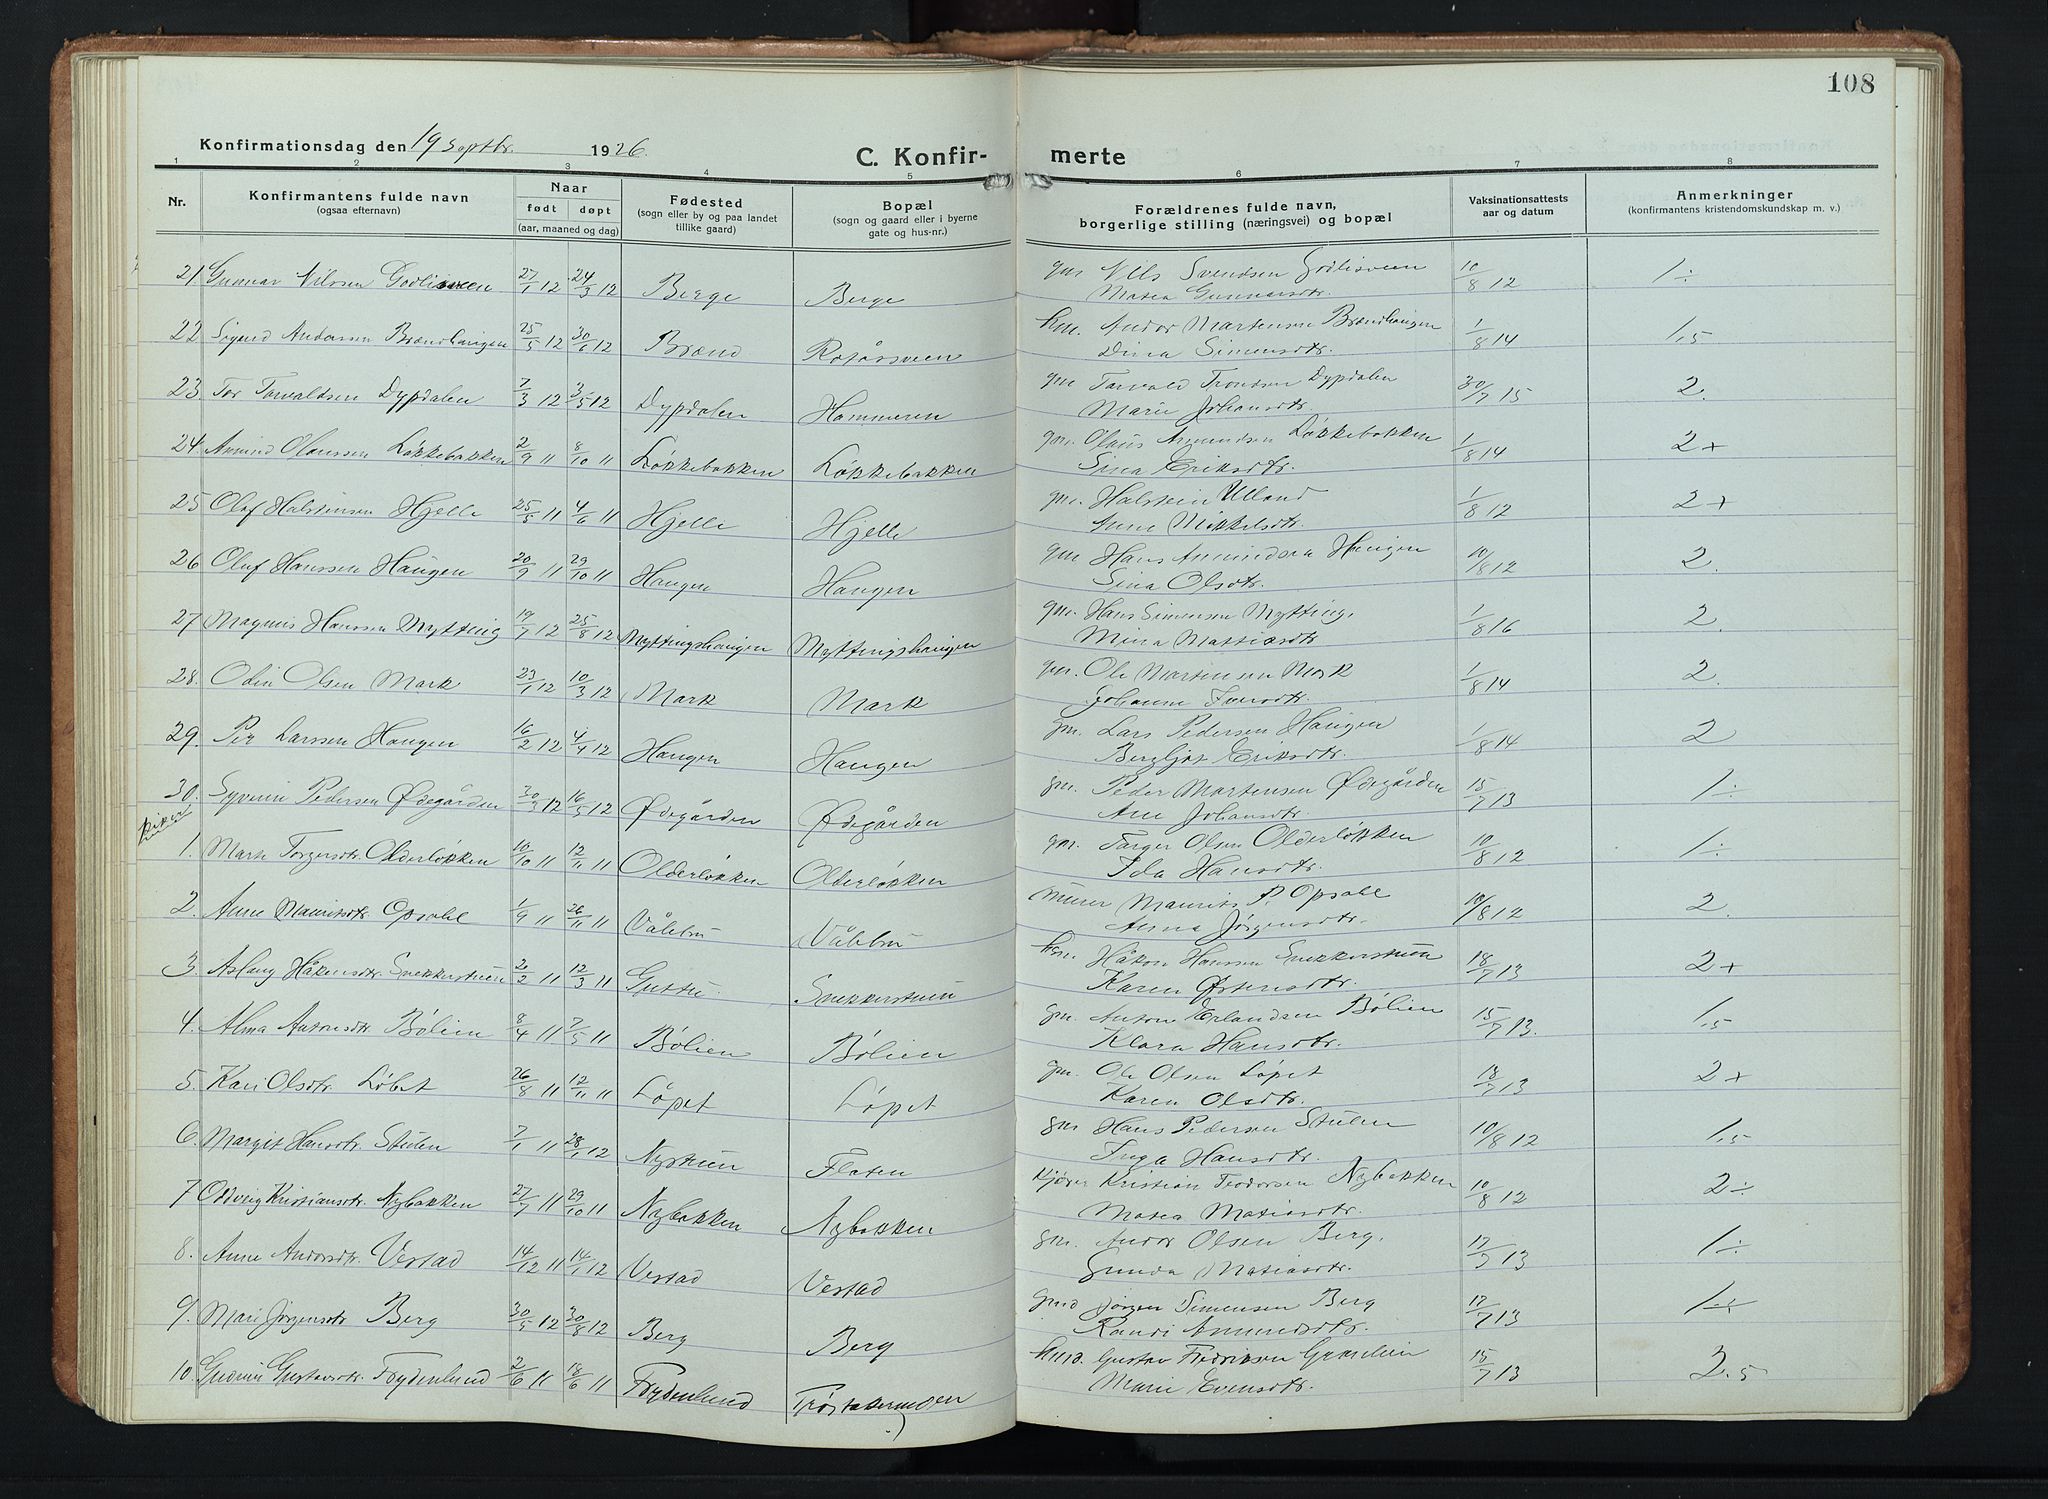 108
Konfirmationsdag den 19 Septbr. 1926.
C. Konfir- merte
1 2 3 4 5 6 7 8
Nr.
Konfirmantens fulde navn
(ogsaa efternavn)
Naar
født døpt
(aar, maaned og dag)
Fødested
(sogn eller by og paa landet
tillike gaard)
Bopæl
(sogn og gaard eller i byerne
gate og hus-nr.)
Forældrenes fulde navn,
borgerlige stilling (næringsvei) og bopæl
Vaksinationsattests
aar og datum
Anmerkninger
(konfirmantens kristendomskundskap m. v.)
21 Gunnar Nilssen Godlisveen 27/1 12 24/3 12 Berge Berge gm Nils Svendsen Godlisveen 10/8 12 1 ÷
Matea Gunnarsdtr.
22 Sigurd Andersen Brændhaugen 25/5 12 30/6 12 Brænd Rolåssveen hm. Andor Martensen Brændhaugen 1/8 14 1,5
Dina Simensdtr.
23 Tor Torvaldsen Dypdalen 7/3 12 3/5 12 Dypdalen Hammeren gm Torvald Trondsen Dypdalen 30/7 15 2.
Marie Johansdtr.
24. Amund Olaussen Løkkebakken 2/9 11 8/10 11 Løkkebakken Løkkebakken gm. Olaus Amundsen Løkkebakken 1/8 14 2+
Sina Eriksdtr.
25 Olaf Halstensen Hjelle 25/5 11 4/6 11 Hjelle Hjelle gm. Halstein Ulland 1/8 12 2+
Anne Mikkelsdtr.
26 Oluf Hanssen Haugen 20/9 11 29/10 11 Haugen Haugen gm Hans Amundsen Haugen 10/8 12 2.
Sina Olsdtr.
27 Magnus Hanssen Mytting 19/7 12 25/8 12 Myttingshaugen Myttingshaugen gm. Hans Simensen Mytting. 1/8 16 2.
Mina Mattiasdtr
28. Odin Olsen Mark 23/1 12 10/3 12 Mark Mark gm. Ole Martensen Mark 1/8 14 2.
Johanne Iversdtr.
29. Per Larssen Haugen 16/2 12 4/4 12 Haugen Haugen gm. Lars Pedersen Haugen 1/8 14 2
Bergljot Eriksdtr.
30. Syverin Pedersen Ødegården 30/3 12 16/5 12 Ødegården Ødegården gm. Peder Martensen Ødegården 15/7 13 1 ÷
Ane Johansdtr.
piker
1. Marte Torgersdtr. Olderløkken 10/10 11 12/11 11 Olderløkken Olderløkken gm Torger Olsen Olderløkken 10/8 12 1 ÷
Ida Hansdtr.
2. Anne Mauritsdtr. Opsahl 1/9 11 26/11 11 Vålebru Vålebru murer Maurits P. Opsahl 10/8 12 2.
Anna Jørgensdtr.
3. Aslaug Håkensdtr. Snekkerstuen 2/2 11 12/3 11 Snekkerstuen hm. Håkon Hanssen Snekkerstuen 18/7 13 2+
Karen Østensdtr.
4. Alma Antonsdtr Bølien 8/4 11 7/5 11 Bølien Bølien gm. Anton Erlandsen Bølien 15/7 13. 1,5
Klara Hansdtr.
5. Kari Olsdtr. Løbet 26/8 11 12/11 11 Løpet Løpet gm. Ole Olsen Løpet 18/7 13 2+
Karen Olsdtr.
6. Margit Hansdtr. Stulen 7/1 11 28/1 12 Nystuen Flaten gm Hans Pedersen Stulen 10/8 12 1,5
Inga Hansdtr.
7 Oddveig Kristiansdtr. Nybakken 27/7 11 29/10 11 Nybakken Nybakken kjører Kristian Teodorsen Nybakken 10/8 12 2 ÷
Matea Matiasdtr.
8. Anne Andorsdtr. Vestad 14/12 11 14/1 12 Vestad Vestad gm. Andor Olsen Berg. 17/3 13 1 ÷
Gunda Matiasdtr.
9. Mari Jørgensdtr Berg 30/5 12 30/8 12 Berg Berg gmd Jørgen Simensen Berg 17/7 13 1 ÷
Randi Amundsdtr.
10. Gudrun Gustavsdtr. Frydenlund 2/6 11 18/6 11 Frydenlund hmd. Gustav Fredriksen 15/7 13 2.5
Marie Evensdtr.